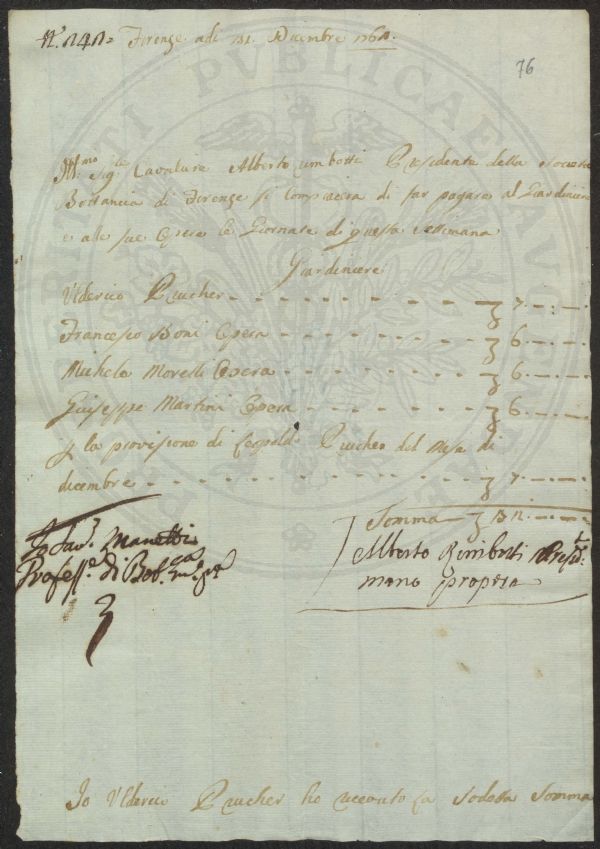 Firenze adi 31. Dicembre 1761.
76
Ill.mo Sig.re Cavaliere Alberto rimbotti Presidente della Società
Bottanica di Firenze si compiacia di far pagare al Giardiniere
e alle sue Opere le Giornate di questa settimana
Giardiniere
Ulderico Prucher 7
Francesco Boni Opera 6
Michele Morelli Opera 6
Giuseppe Martini Opera 6
p la provisione di Leopoldo Prucher del Mese di
dicembre 7
Somma 32
Io Sav. Manetti
Profess.e di Bot.ca m.o p.a
Alberto Rimbotti Presid.te
mano propria
Io Ulderico Prucher ho riceuto la sodetta Somma